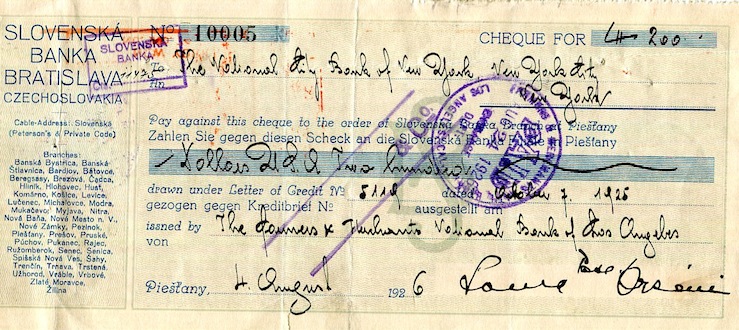 SLOVENSKÁ
BANKA
BRATISLAVA
CZECHOSLOVAKIA
Cable-Address: Slovenská
(Peterson's & Private Code)
Branches:
Banská Bystrica, Banská
Štiavnica, Bardjov, Bátovce,
Beregsasy, Brezová, Čadca,
Hliník, Hlohovec, Hust,
Komárno, Košice, Levice,
Lučenec, Michalovce, Modra,
Mukačevo, Myjava, Nitra,
Nová Baňa, Nové Mesto n. V.,
Nové Zámky, Pezinok,
Piešťany, Prešov, Pruské,
Púchov, Pukanec, Rajec,
Ružomberok, Senec, Senica,
Spišská Nová Ves, Šahy,
Trenčín, Trnava, Trstená,
Užhorod, Vráble, Vrbové,
Zlaté Moravce,
Žilina
No 10005
SLOVENSKÁ
BANKA
CHEQUE FOR $ 200
To The National City Bank of New York, New York City
An York
Pay against this cheque to the order of Slovenská Banka Branche Piešťany
Zahlen Sie gegen diesen Scheck an die Slovenská Banka Filiale Piešťany
Dollars U.S.A. Two hundred
drawn under Letter of Credit No 8119 dated October 7. 1925
gezogen gegen Kreditbrief No ausgestellt am
issued by The Farmers & Merchants National Bank of Los Angeles
von
Piešťany, 4. August 1926
LOS ANGELES